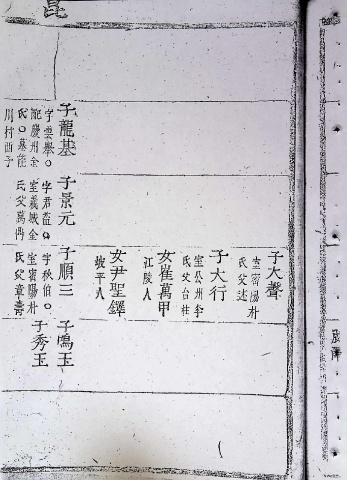 昆
子大聲
室密陽朴
氏父述
子大行
室公州李
氏父台柱
女崔萬甲
江陵人
女尹聖鐸
坡平人
子龍基
字雲擧
配慶州金
氏 墓龍
川村酉子
子景元
字君益
室義城金
氏父萬
子順三
字秋伯
室密陽朴
氏父章壽
子鳴玉
子秀玉